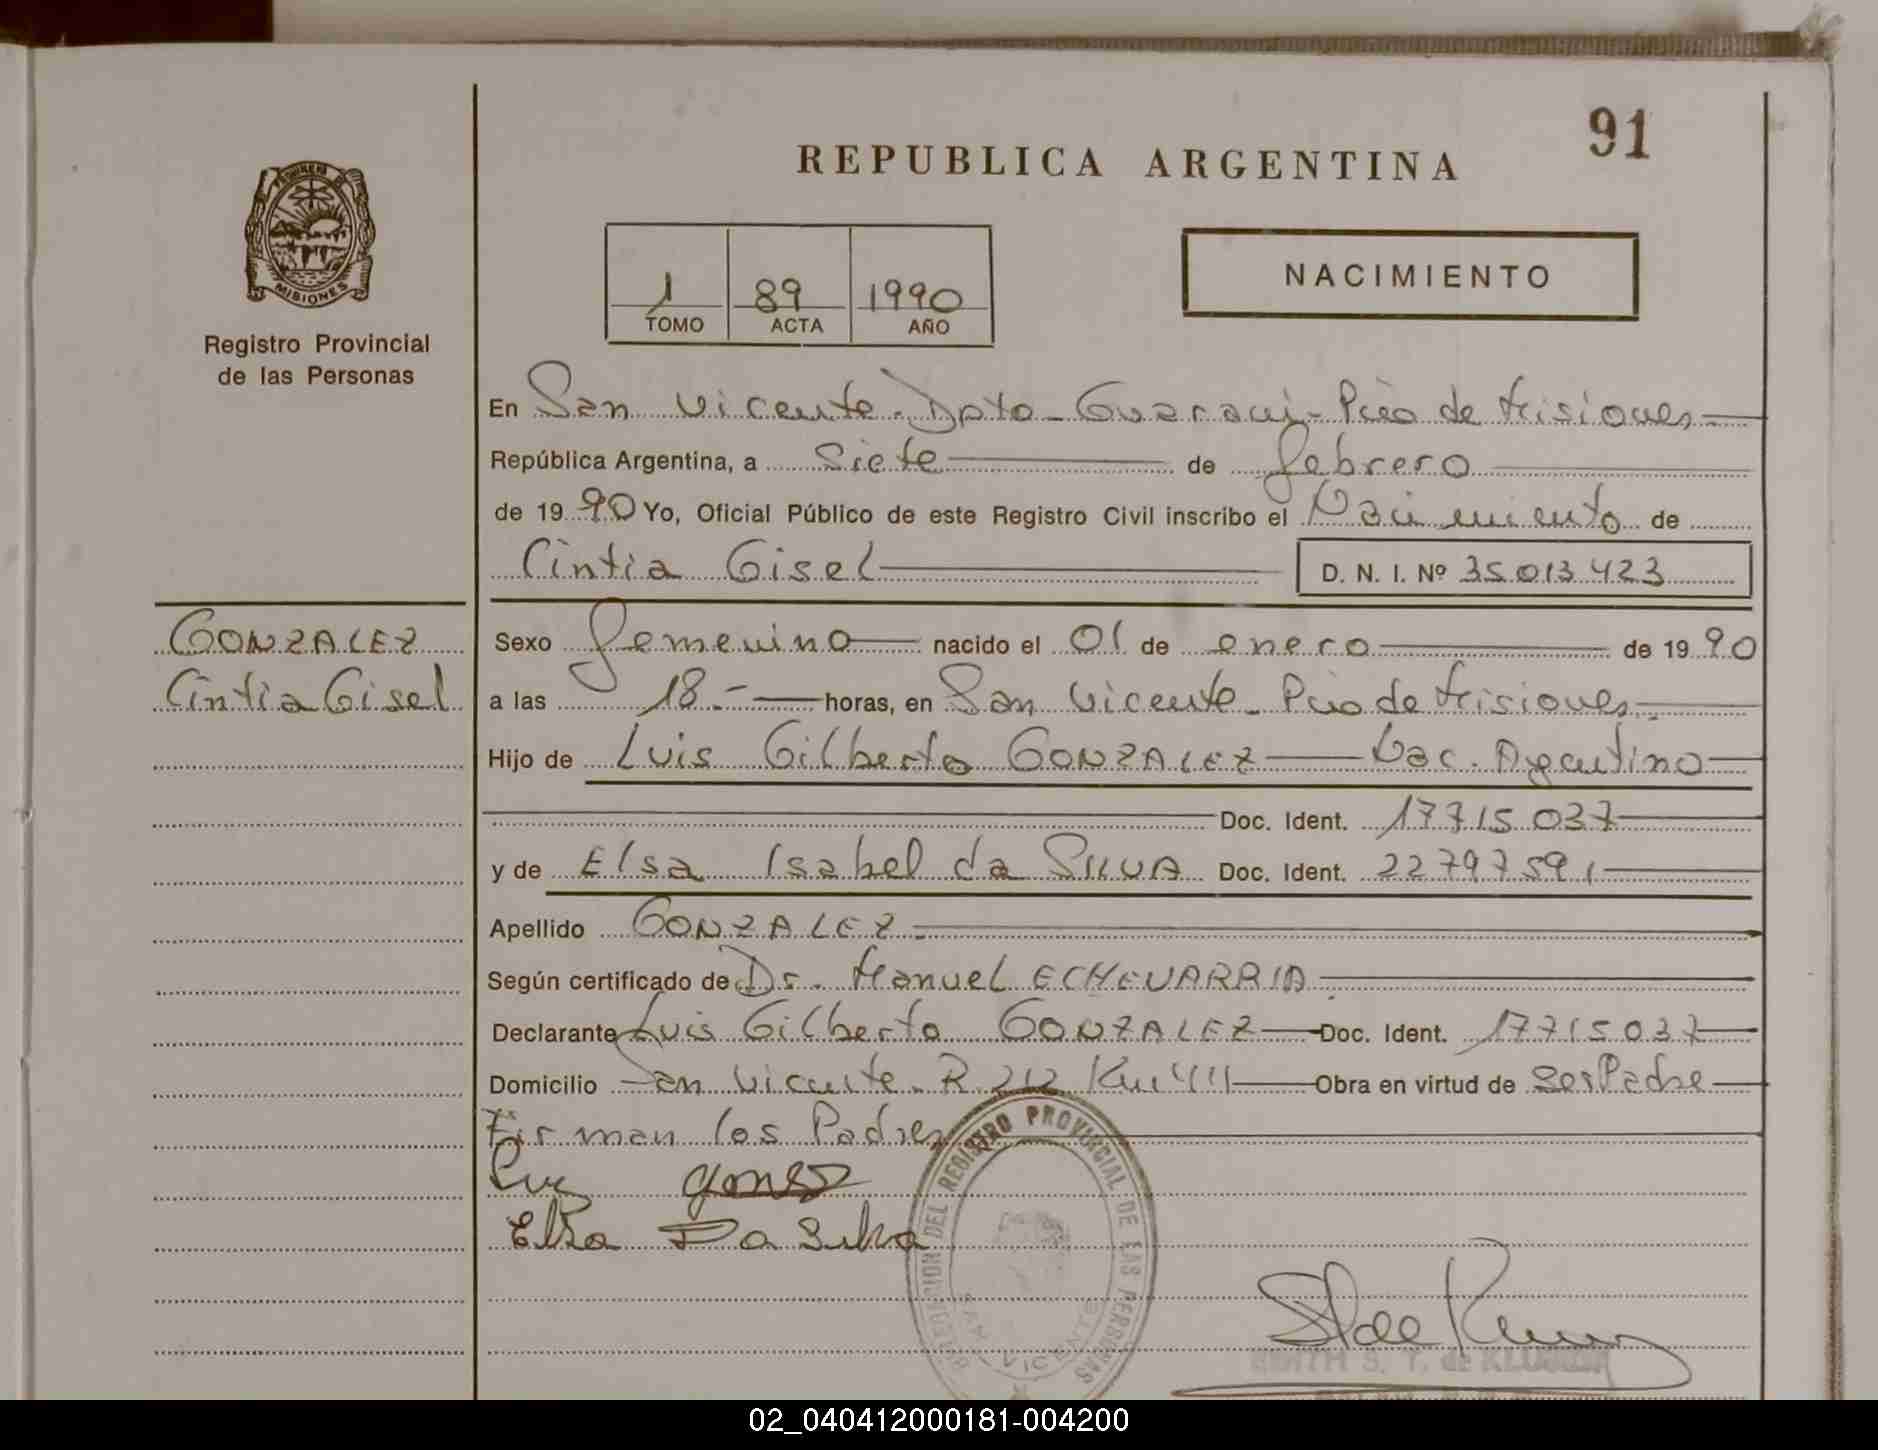 91
REPUBLICA ARGENTINA
PROVINCIA DE
MISIONES
Registro Provincial
de las Personas
1 89 1990
TOMO ACTA AÑO
NACIMIENTO
En San Vicente - Dpto - Guarani - Pcia de Misiones
República Argentina, a siete de febrero
de 1990 Yo, Oficial Público de este Registro Civil inscribo el Nacimiento de
Cintia Gisel D. N. I. Nº 35013423
GONZALEZ
Cintia Gisel
Sexo femenino nacido el 01 de enero de 1990
a las 18.- horas, en San Vicente - Pcia de Misiones
Hijo de Luis Gilberto GONZALEZ Nac. Argentino
Doc. Ident. 17715037
y de Elsa Isabel da SILVA Doc. Ident. 22797591
Apellido GONZALEZ
Según certificado de Dr. Manuel ECHEVARRIA
Declarante Luis Gilberto GONZALEZ Doc. Ident. 17715037
Domicilio San Vicente - R. 212 Km Obra en virtud de ser Padre
Firman los Padres
Elsa Da Silva
DIRECCION DEL REGISTRO PROVINCIAL DE LAS PERSONAS
SAN VICENTE
EDITH S. T. de
02_040412000181-004200